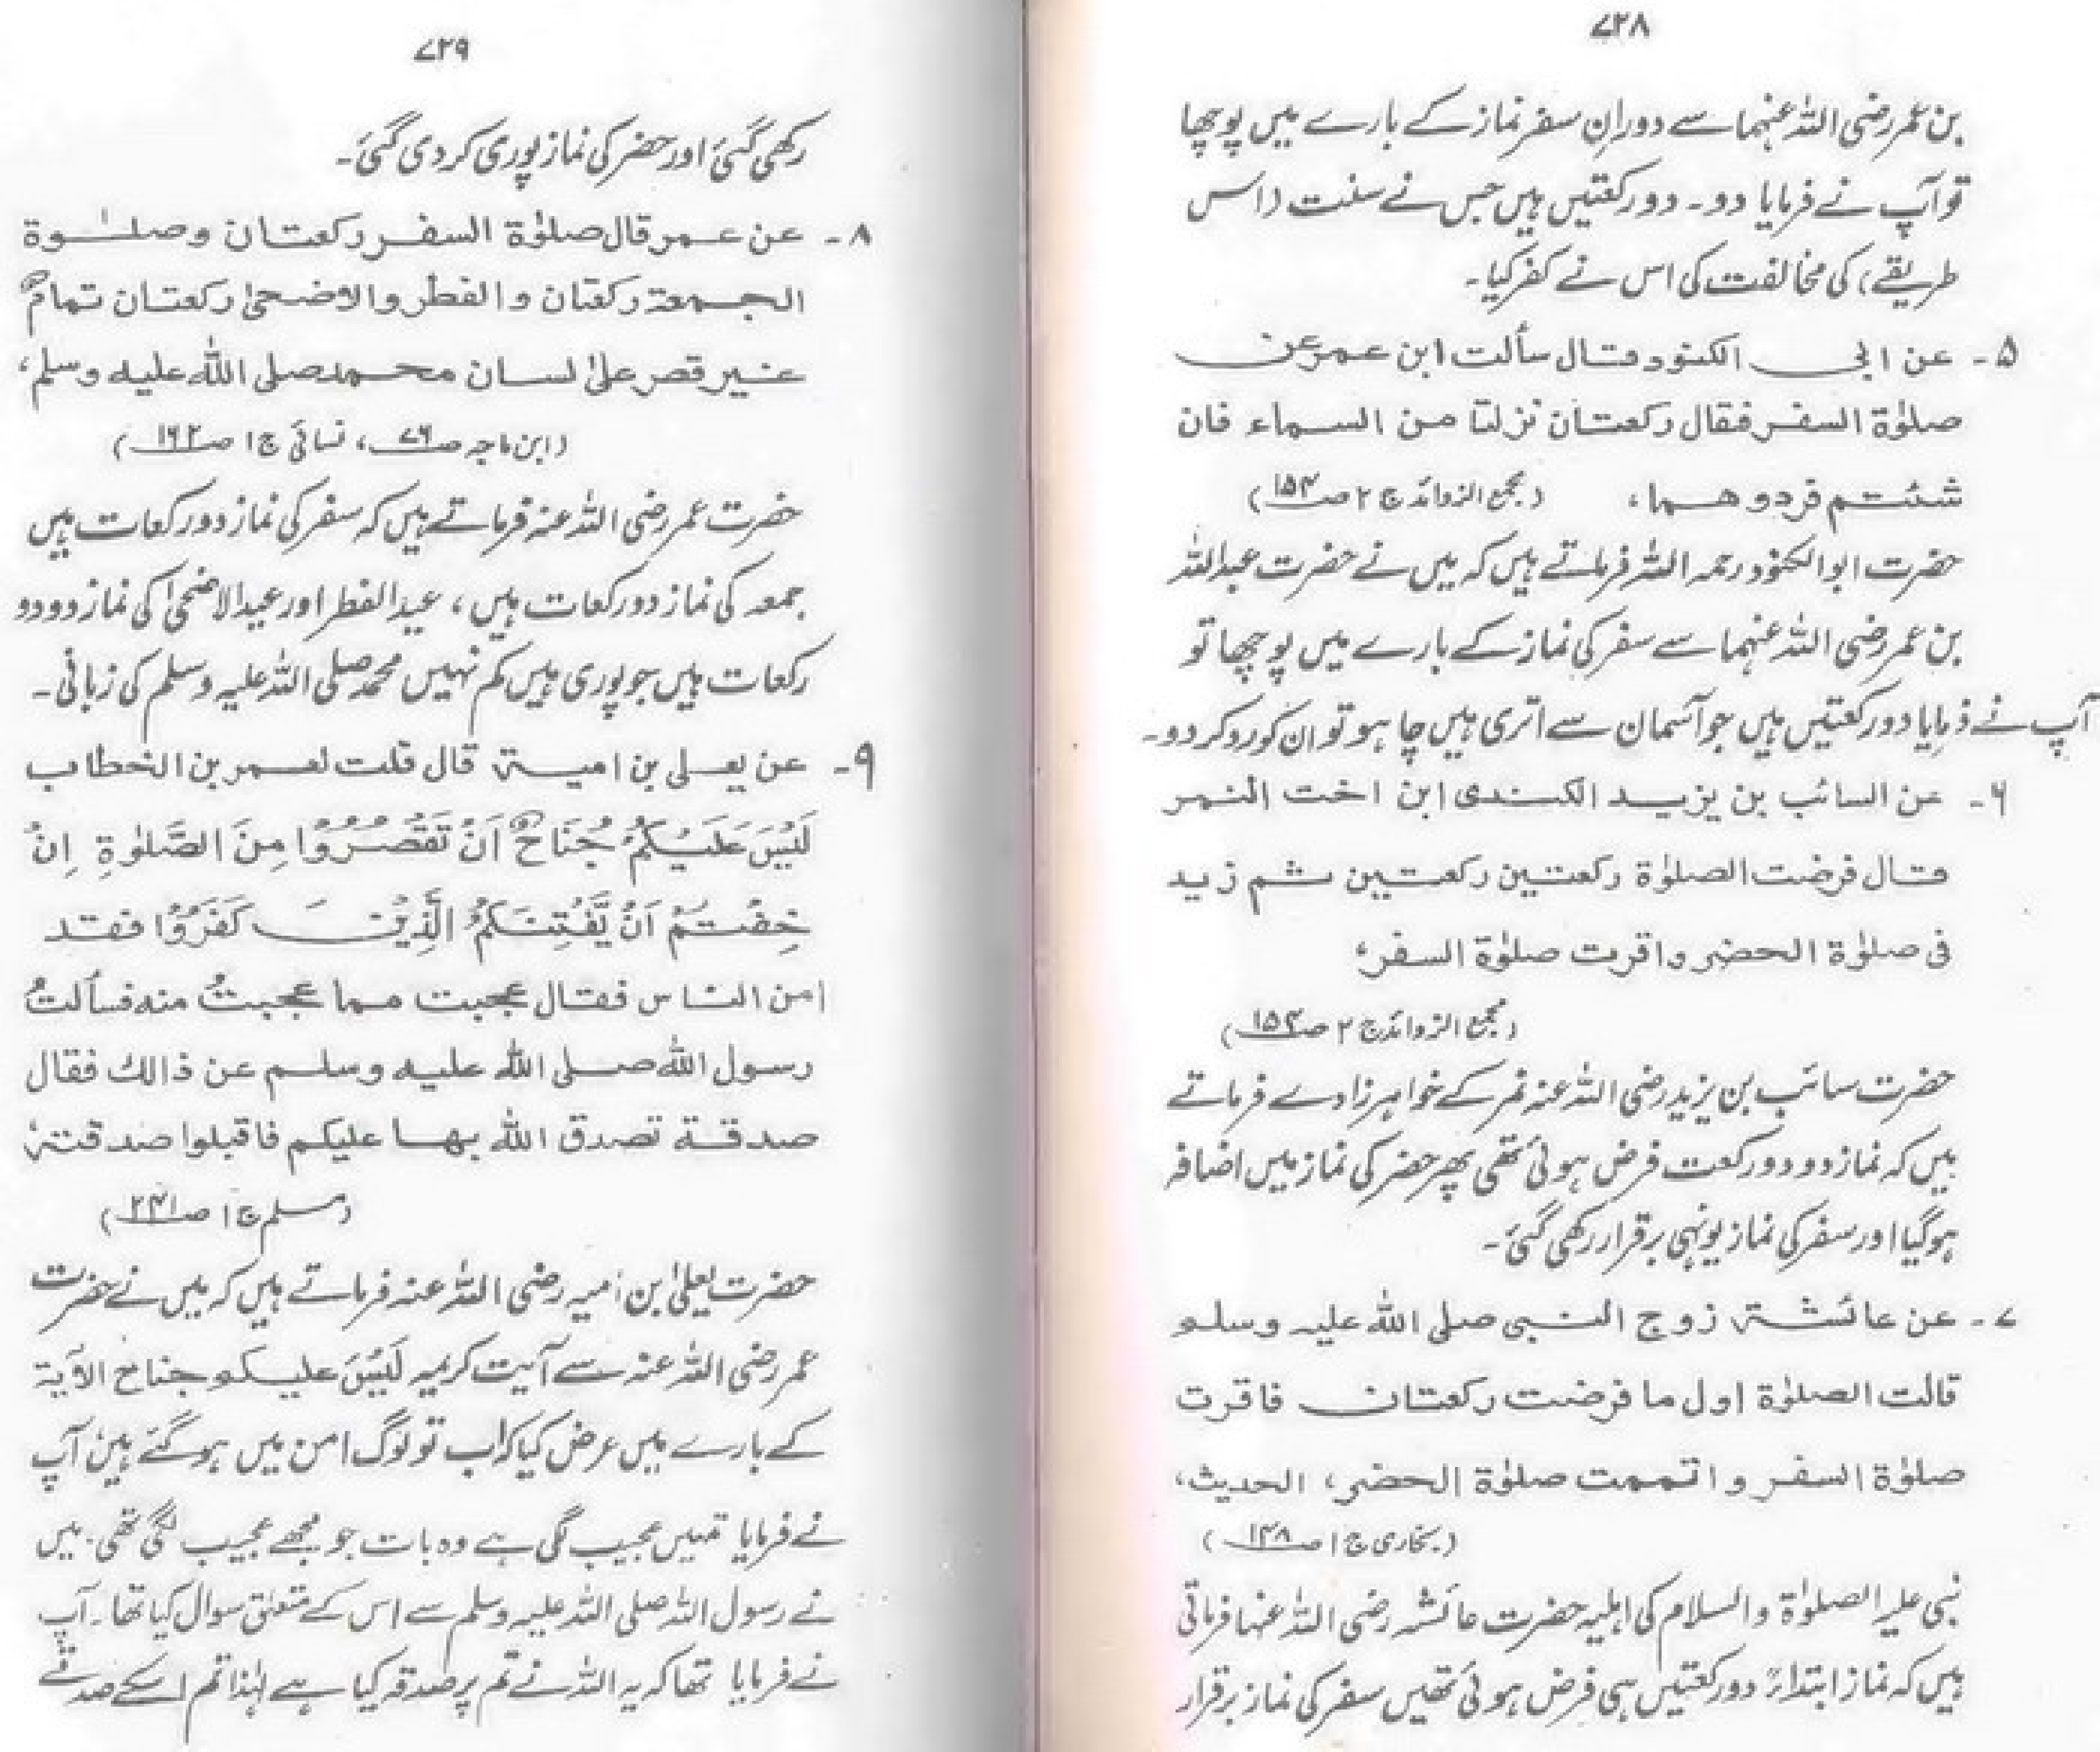 ۷۲۸
بن عمر رضی اللہ عنہما سے دورانِ سفر نماز کے بارے میں پوچھا
تو آپ نے فرمایا دو۔ دو رکعتیں ہیں جس نے سنت (اس
طریقے) کی مخالفت کی اس نے کفر کیا۔
۵۔ عن ابی الکنود قال سألت ابن عمر عن
صلوٰۃ السفر فقال رکعتان نزلتا من السماء فان
شئتم فردوهما، (مجمع الزوائد ج ۲ ص ۱۵۴)
حضرت ابو الکنود رحمہ اللہ فرماتے ہیں کہ میں نے حضرت عبداللہ
بن عمر رضی اللہ عنہما سے سفر کی نماز کے بارے میں پوچھا تو
آپ نے فرمایا دو رکعتیں ہیں جو آسمان سے اتری ہیں چاہو تو ان کو رد کر دو۔
۶۔ عن السائب بن یزید الکندی ابن اخت النمر
قال فرضت الصلوٰۃ رکعتین رکعتین ثم زید
فی صلوٰۃ الحضر واقرت صلوٰۃ السفر،
(مجمع الزوائد ج ۲ ص ۱۵۴)
حضرت سائب بن یزید رضی اللہ عنہ نمر کے خواہرزادے فرماتے
ہیں کہ نماز دو دو رکعت فرض ہوئی تھی پھر حضر کی نماز میں اضافہ
ہوگیا اور سفر کی نماز یونہی برقرار رکھی گئی۔
۷۔ عن عائشۃ زوج النبی صلی اللہ علیہ وسلم
قالت الصلوٰۃ اول ما فرضت رکعتان فاقرت
صلوٰۃ السفر واتممت صلوٰۃ الحضر، الحدیث،
(بخاری ج ۱ ص ۱۴۸)
نبی علیہ الصلوٰۃ والسلام کی اہلیہ حضرت عائشہ رضی اللہ عنہا فرماتی
ہیں کہ نماز ابتداءً دو رکعتیں ہی فرض ہوئی تھیں سفر کی نماز برقرار
۷۲۹
رکھی گئی اور حضر کی نماز پوری کر دی گئی۔
۸۔ عن عمر قال صلوٰۃ السفر رکعتان وصلوٰۃ
الجمعۃ رکعتان والفطر والاضحیٰ رکعتان تمامٌ
غیر قصر علیٰ لسان محمد صلی اللہ علیہ وسلم،
(ابن ماجہ ص ۷۶، نسائی ج ۱ ص ۱۶۲)
حضرت عمر رضی اللہ عنہ فرماتے ہیں کہ سفر کی نماز دو رکعات ہیں
جمعہ کی نماز دو رکعات ہیں، عید الفطر اور عید الاضحیٰ کی نماز دو دو
رکعات ہیں جو پوری ہیں کم نہیں محمد صلی اللہ علیہ وسلم کی زبانی۔
۹۔ عن یعلی بن امیۃ قال قلت لعمر بن الخطاب
لَیْسَ عَلَیْکُمْ جُنَاحٌ اَنْ تَقْصُرُوْا مِنَ الصَّلٰوۃِ اِنْ
خِفْتُمْ اَنْ یَّفْتِنَکُمُ الَّذِیْنَ کَفَرُوْا فقد
امن الناس فقال عجبت مما عجبتُ منه فسألتُ
رسول اللہ صلی اللہ علیہ وسلم عن ذالك فقال
صدقۃ تصدق اللہ بها علیکم فاقبلوا صدقتهٗ
(مسلم ج ۱ ص ۲۴۱)
حضرت یعلیٰ بن امیہ رضی اللہ عنہ فرماتے ہیں کہ میں نے حضرت
عمر رضی اللہ عنہ سے آیت کریمہ لَیْسَ علیکم جناح الآیۃ
کے بارے میں عرض کیا کہ اب تو لوگ امن میں ہوگئے ہیں، آپ
نے فرمایا تمہیں عجیب لگی ہے وہ بات جو مجھے عجیب لگی تھی۔ میں
نے رسول اللہ صلی اللہ علیہ وسلم سے اس کے متعلق سوال کیا تھا۔ آپ
نے فرمایا تھا کہ یہ اللہ نے تم پر صدقہ کیا ہے لہٰذا تم اسکے صدقے